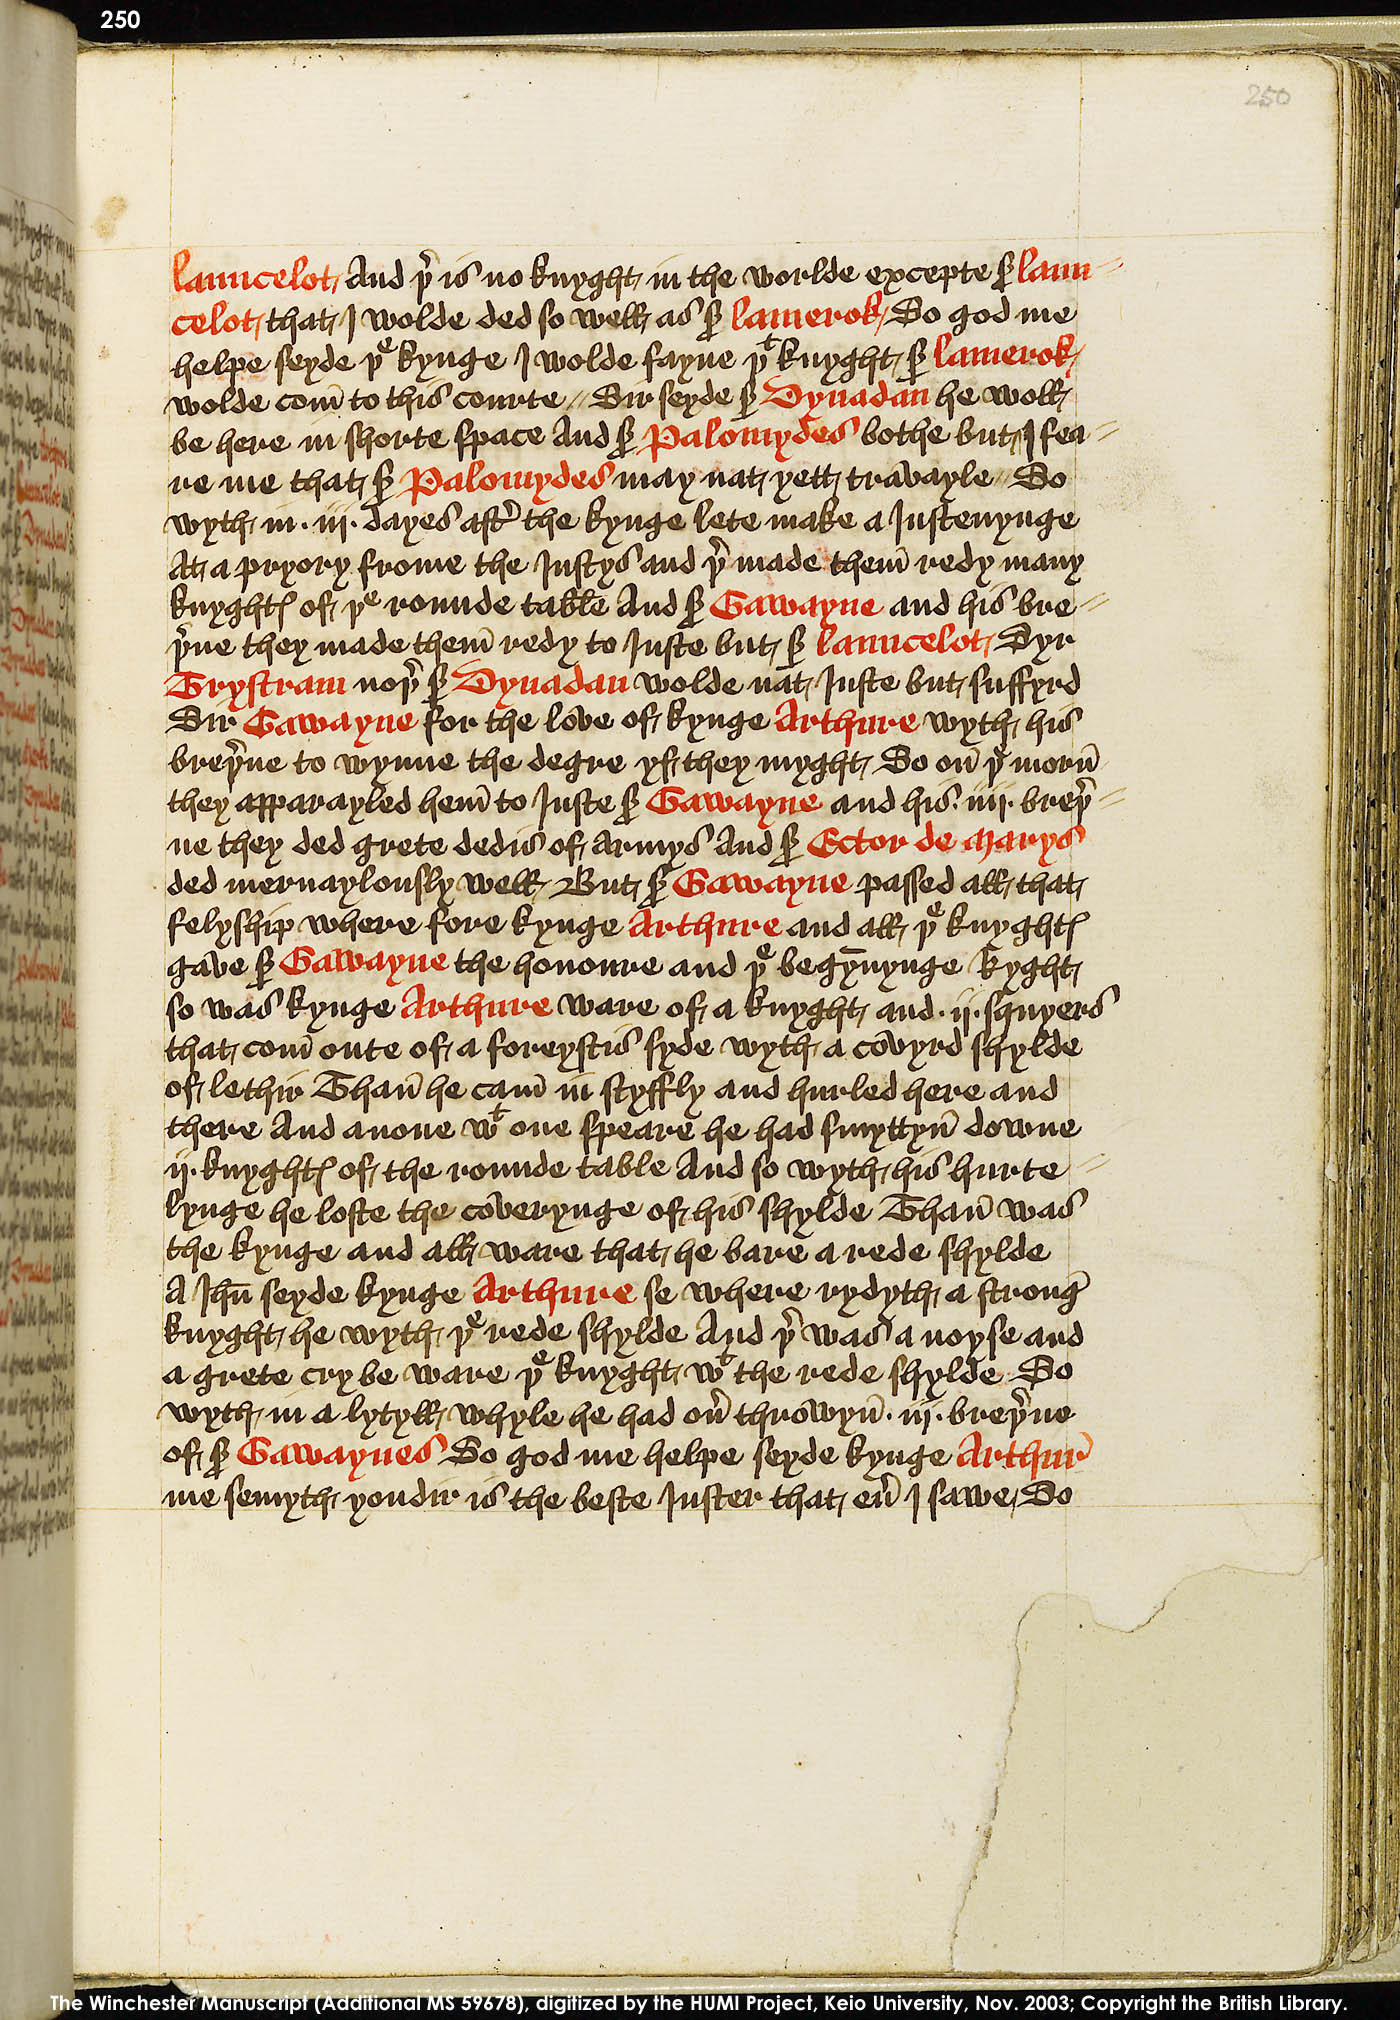 250
250
launcelot, And þr is no knyght, in the worlde excepte sr laun=
celot, that, I wolde ded so well as sr lamerok, So god me
helpe seyde þe kynge I wolde fayne þt knyght, sr lamerok,
wolde com̄ to this courte // Sir seyde sr Dynadan he woll
be here in shorte space And sr Palomydes bothe but, I fea=
re me that, sr Palomydes may nat, yett, travayle // So
wyth, in .iij. dayes aftr the kynge lete make a Iustenynge
At, a pryory frome the Iustys and þr made them̄ redy many
knyghtes of, þe rounde table And sr Gawayne and his bre=
þrne they made them̄ redy to Iuste but, sr launcelot, Syr
Trystram noþr sr Dynadan wolde nat, Iuste but, suffyrd
Sir Gawayne for the love of, kynge Arthure wyth, his
breþrne to wynne the degre yf, they myght, So on̄ þe morn̄
they apparayled hem̄ to Iuste sr Gawayne and his .iiij. breþr=
ne they ded grete dedis of, armys And sr Ector de Marys
ded mervaylously well, But, sr Gawayne passed all, that,
felyship where fore kynge Arthure and all, þe knyghtes
gave sr Gawayne the honoure and þe begȳnynge Ryght,
so was kynge Arthure ware of, a knyght, and .ij. squyers
that, com̄ oute of, a foreystis syde wyth, a covyrd shylde
of, lethir Than̄ he cam̄ in styffly and hurled here and
there And anone wt one speare he had smyttyn̄ downe
ij. knyghtes of, the rounde table And so wyth, his hurte =
lynge he loste the coverynge of, his shylde Than̄ was
the kynge and all, ware that, he bare a rede shylde
A Ihū seyde kynge Arthure se where rydyth, a stronḡ
knyght, he wyth, þe rede shylde And þr was a noyse and
a grete cry be ware þe knyght, wt the rede shylde So
wyth, in a lytyll, whyle he had ovr throwyn̄ .iij. breþrne
of, sr Gawaynes So god me helpe seyde kynge Arthur̄
me semyth, yondir is the beste Iuster that, evr I sawe, So
The Winchester Manuscript (Additional MS 59678), digitized by the HUMI Project, Keio University, Nov. 2003; Copyright the British Library.